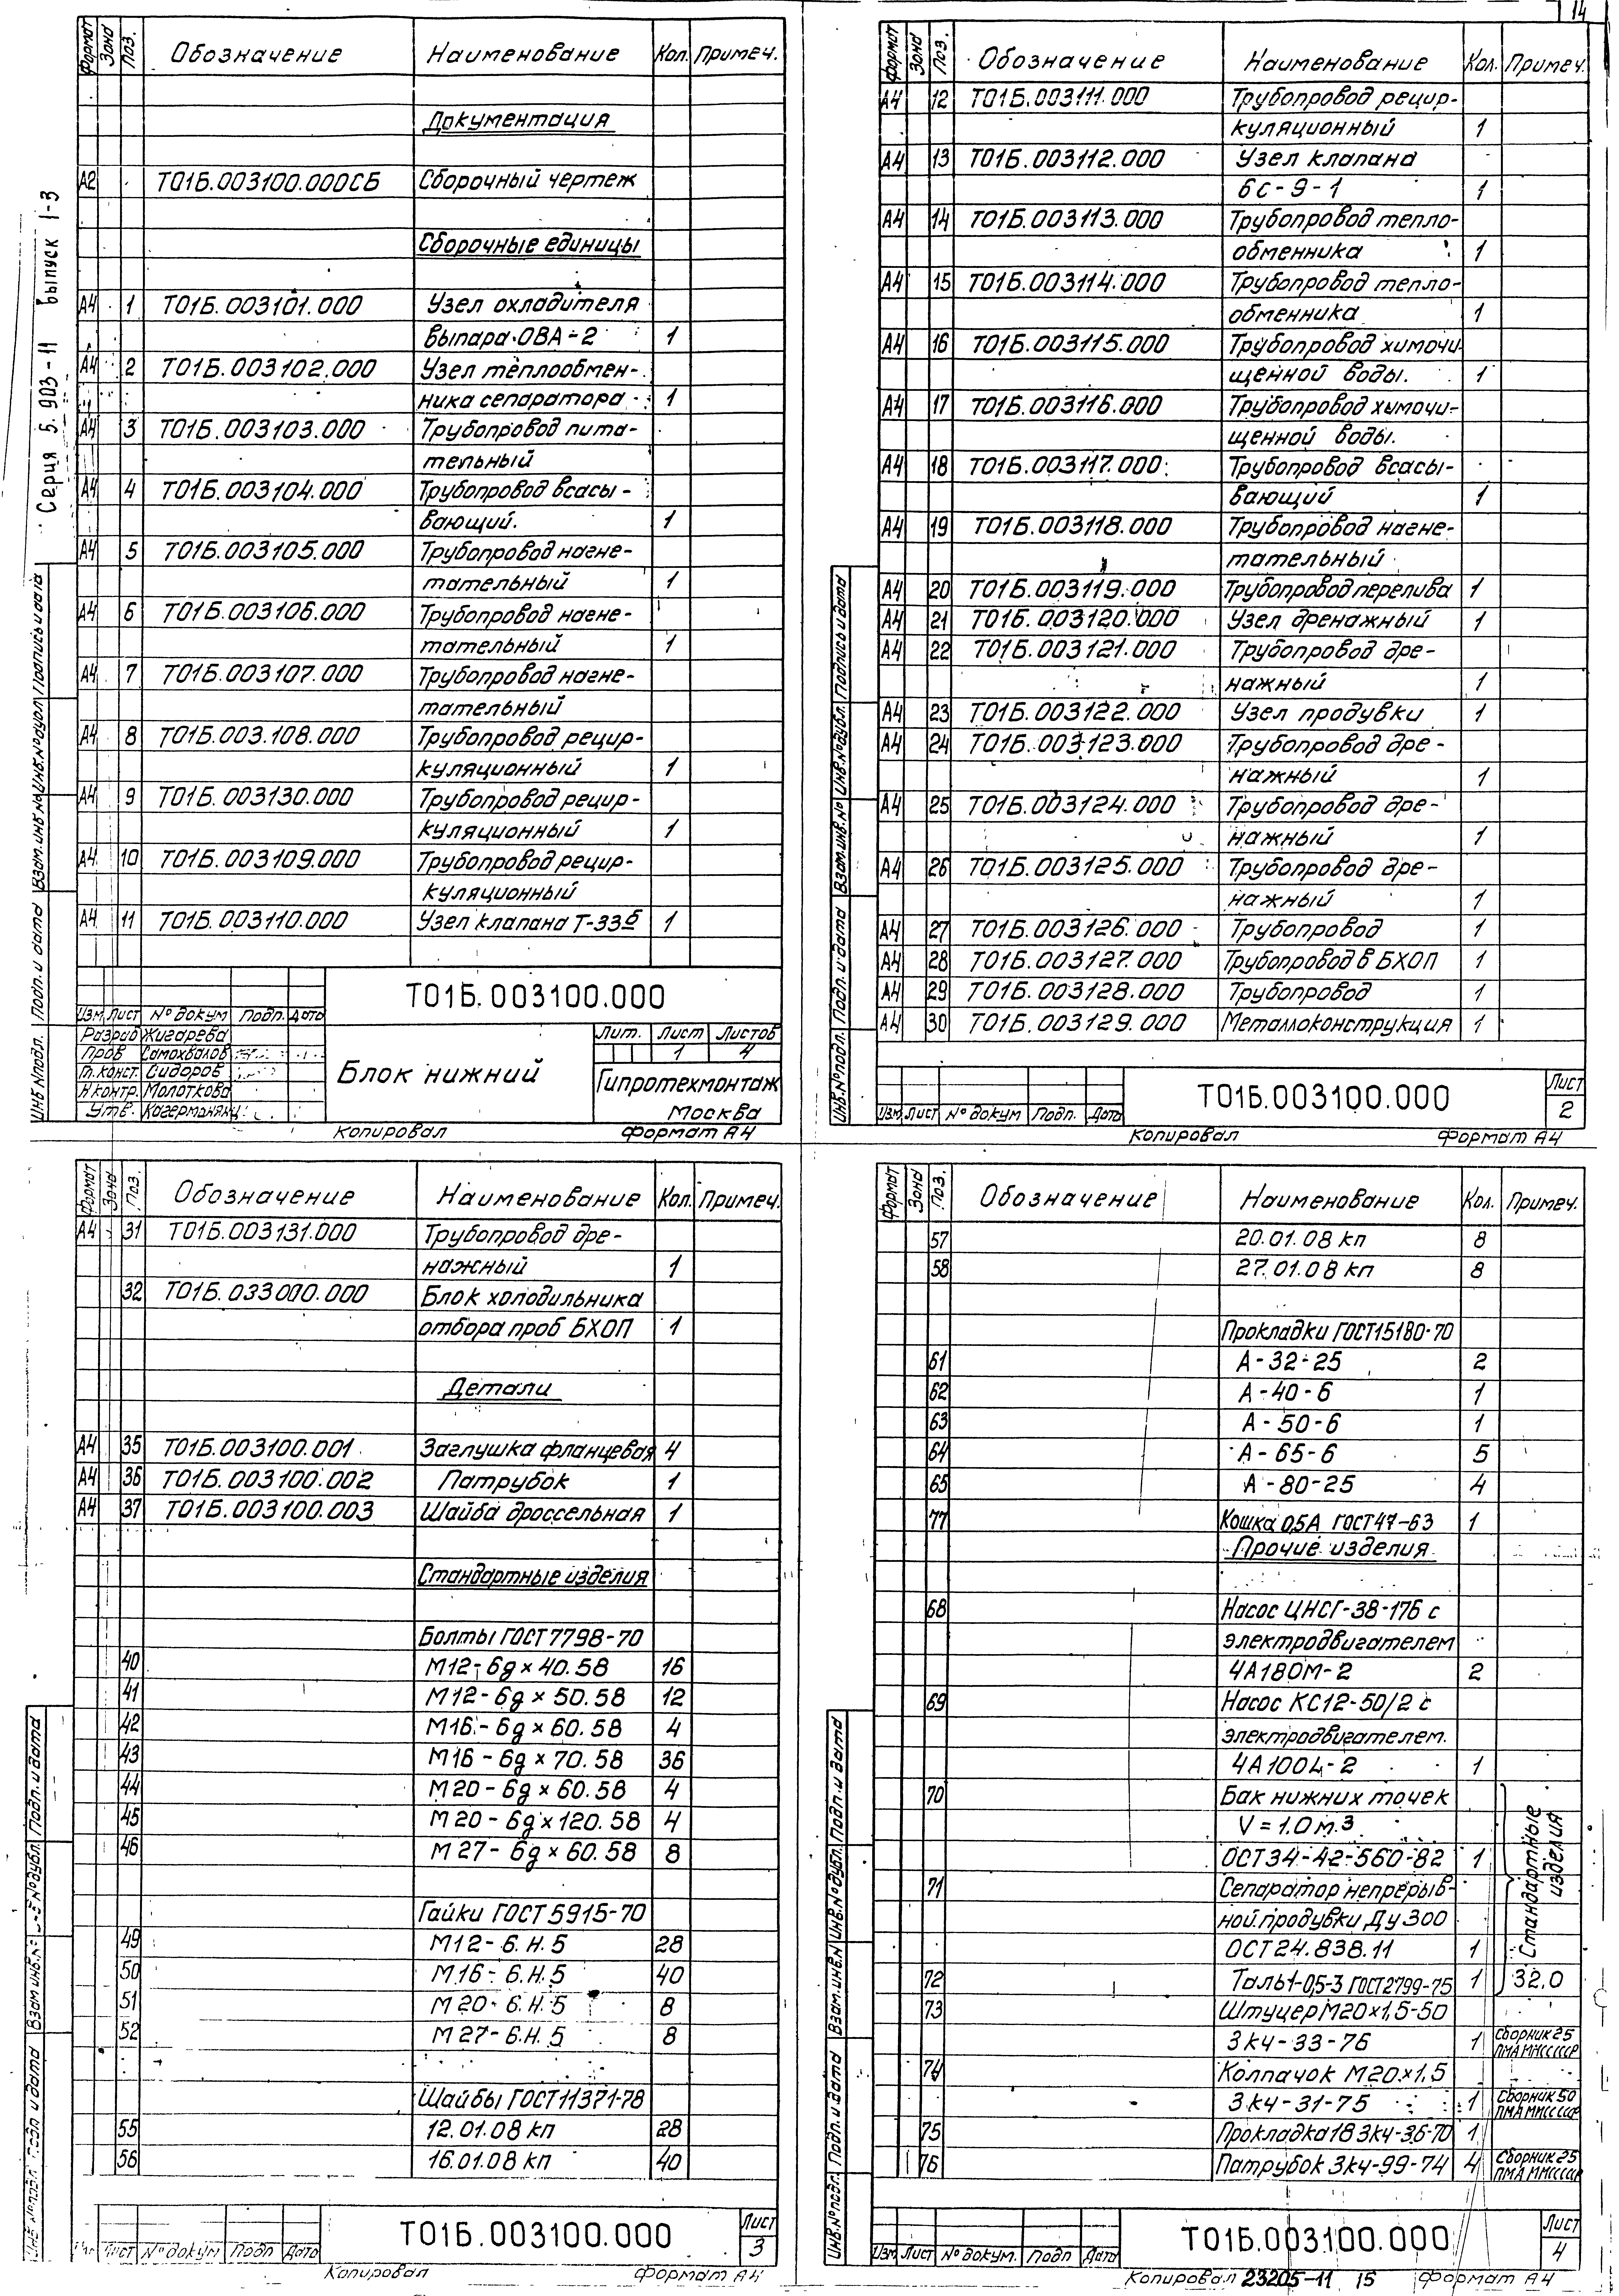 14
Серия 5.903-11 выпуск 1-3
Формат Зона Поз. Обозначение Наименование Кол. Примеч.
Документация
А2 Т01Б.003100.000СБ Сборочный чертеж
Сборочные единицы
А4 1 Т01Б.003101.000 Узел охладителя
выпара ОВА-2 1
А4 2 Т01Б.003102.000 Узел теплообмен-
ника сепаратора 1
А4 3 Т01Б.003103.000 Трубопровод пита-
тельный
А4 4 Т01Б.003104.000 Трубопровод всасы-
вающий. 1
А4 5 Т01Б.003105.000 Трубопровод нагне-
тательный 1
А4 6 Т01Б.003106.000 Трубопровод нагне-
тательный 1
А4 7 Т01Б.003107.000 Трубопровод нагне-
тательный
А4 8 Т01Б.003.108.000 Трубопровод рецир-
куляционный 1
А4 9 Т01Б.003130.000 Трубопровод рецир-
куляционный 1
А4 10 Т01Б.003109.000 Трубопровод рецир-
куляционный
А4 11 Т01Б.003110.000 Узел клапана Т-33б 1
Инв.№подл. Подп. и дата Взам.инв.№ Инв.№дубл. Подпись и дата
Т01Б.003100.000
Изм Лист № докум Подп. Дата
Разраб Жигарева
Пров Самохвалов
Гл.конст. Сидоров
Н.контр. Молоткова
Утв.
Блок нижний
Лит. Лист Листов
1 4
Гипротехмонтаж
Москва
Копировал Формат А4
Формат Зона Поз. Обозначение Наименование Кол. Примеч.
А4 12 Т01Б.003111.000 Трубопровод рецир-
куляционный 1
А4 13 Т01Б.003112.000 Узел клапана
6с-9-1 1
А4 14 Т01Б.003113.000 Трубопровод тепло-
обменника 1
А4 15 Т01Б.003114.000 Трубопровод тепло-
обменника 1
А4 16 Т01Б.003115.000 Трубопровод химочи
щенной воды. 1
А4 17 Т01Б.003116.000 Трубопровод химочи-
щенной воды.
А4 18 Т01Б.003117.000 Трубопровод всасы-
вающий 1
А4 19 Т01Б.003118.000 Трубопровод нагне-
тательный
А4 20 Т01Б.003119.000 Трубопровод перелива 1
А4 21 Т01Б.003120.000 Узел дренажный 1
А4 22 Т01Б.003121.000 Трубопровод дре-
нажный 1
А4 23 Т01Б.003122.000 Узел продувки 1
А4 24 Т01Б.003123.000 Трубопровод дре-
нажный 1
А4 25 Т01Б.003124.000 Трубопровод дре-
нажный 1
А4 26 Т01Б.003125.000 Трубопровод дре-
нажный 1
А4 27 Т01Б.003126.000 Трубопровод 1
А4 28 Т01Б.003127.000 Трубопровод в БХОП 1
А4 29 Т01Б.003128.000 Трубопровод 1
А4 30 Т01Б.003129.000 Металлоконструкция 1
Инв.№подл. Подп. и дата Взам.инв.№ Инв.№дубл. Подпись и дата
Изм Лист № докум Подп. Дата
Т01Б.003100.000
Лист
2
Копировал Формат А4
Формат Зона Поз. Обозначение Наименование Кол. Примеч.
А4 31 Т01Б.003131.000 Трубопровод дре-
нажный 1
32 Т01Б.033000.000 Блок холодильника
отбора проб БХОП 1
Детали
А4 35 Т01Б.003100.001 Заглушка фланцевая 4
А4 36 Т01Б.003100.002 Патрубок 1
А4 37 Т01Б.003100.003 Шайба дроссельная 1
Стандартные изделия
Болты ГОСТ 7798-70
40 М12-6g×40.58 16
41 М12-6g×50.58 12
42 М16-6g×60.58 4
43 М16-6g×70.58 36
44 М20-6g×60.58 4
45 М20-6g×120.58 4
46 М27-6g×60.58 8
Гайки ГОСТ 5915-70
49 М12-6.Н.5 28
50 М16-6.Н.5 40
51 М20-6.Н.5 8
52 М27-6.Н.5 8
Шайбы ГОСТ 11371-78
55 12.01.08 кп 28
56 16.01.08 кп 40
Инв.№подл. Подп. и дата Взам.инв.№ Инв.№дубл. Подп. и дата
Лист № докум Подп Дата
Т01Б.003100.000
Лист
3
Копировал Формат А4
Формат Зона Поз. Обозначение Наименование Кол. Примеч.
57 20.01.08 кп 8
58 27.01.08 кп 8
Прокладки ГОСТ15180-70
61 А-32-25 2
62 А-40-6 1
63 А-50-6 1
64 А-65-6 5
65 А-80-25 4
77 Кошка 0,5А ГОСТ 47-63 1
Прочие изделия
68 Насос ЦНСГ-38-176 с
электродвигателем
4А180М-2 2
69 Насос КС12-50/2 с
электродвигателем.
4А100L-2 1
70 Бак нижних точек
V=1.0м.3
ОСТ34-42-560-82 1
71 Сепаратор непрерыв-
ной продувки Ду 300
ОСТ24.838.11 1
Стандартные изделия
72 Таль1-0,5-3 ГОСТ2799-75 1 32.0
73 Штуцер М20×1,5-50
3кч-33-76 1 Сборник 25
ПМА ММСССР
74 Колпачок М20×1,5
3кч-31-75 1 Сборник 50
ПМА ММСССР
75 Прокладка18 3кч-36-70 1
76 Патрубок 3кч-99-74 4 Сборник 25
ПМА ММСССР
Инв.№подл. Подп. и дата Взам.инв.№ Инв.№дубл. Подп. и дата
Изм Лист № докум. Подп Дата
Т01Б.003100.000
Лист
4
Копировал 23205-11 15 Формат А4